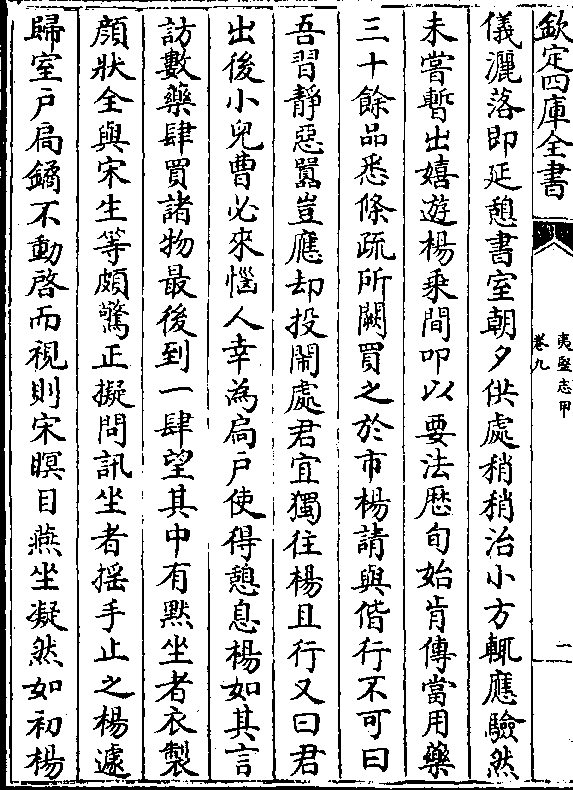 欽定四庫全書
夷堅志甲
卷九
二
儀灑落即延憩書室朝夕供處稍稍治小方輒應驗然
未嘗暫出嬉遊楊乗間叩以要法歴旬始肯傳當用藥
三十餘品悉條疏所闕買之於市楊請與偕行不可曰
吾習靜惡囂豈應却投閙處君宜獨住楊且行又曰君
出後小兒曹必來惱人幸為扃戸使得憩息楊如其言
訪數藥肆買諸物最後到一肆望其中有黙坐者衣製
顔狀全與宋生等頗驚正擬問訊坐者揺手止之楊遽
歸室戸扃鐍不動啓而視則宋瞑目燕坐凝然如初楊